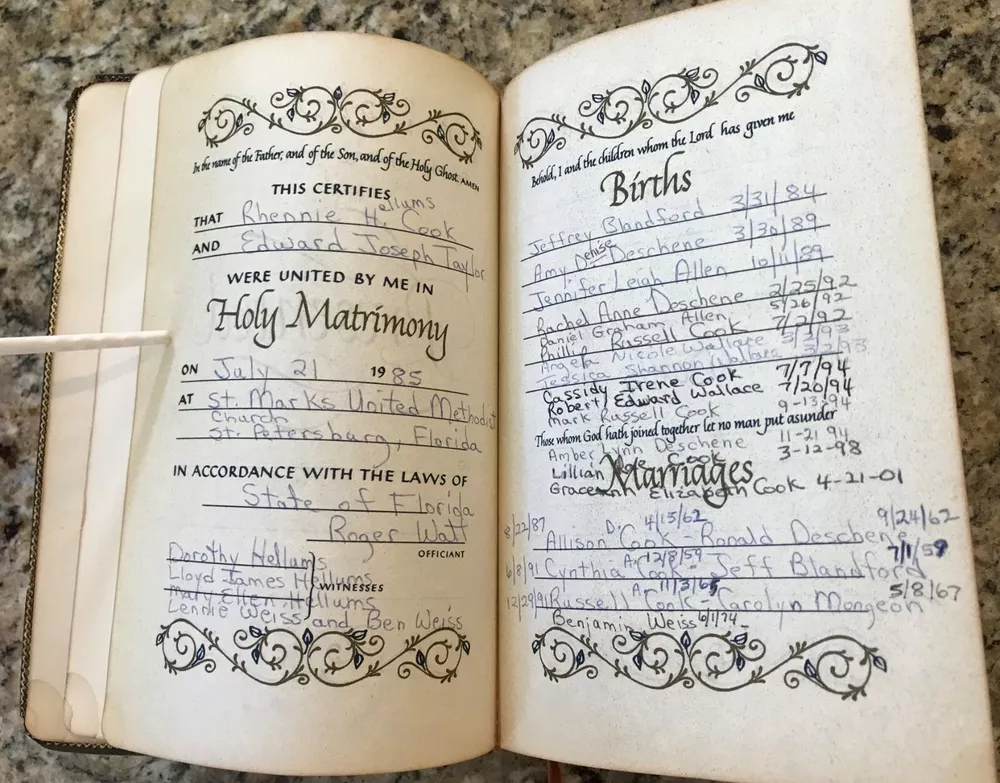 In the name of the Father, and of the Son, and of the Holy Ghost. AMEN
THIS CERTIFIES
ellums
THAT Rhennie H. Cook
AND Edward Joseph Taylor
WERE UNITED BY ME IN
Holy Matrimony
ON July 21 1985
AT St. Marks United Methodist
Church
St. Petersburg, Florida
IN ACCORDANCE WITH THE LAWS OF
State of Florida
Roger Watt
OFFICIANT
Dorothy Hellums
Lloyd James Hellums
WITNESSES
Mary Ellen Hellums
Lennie Weiss and Ben Weiss
Behold, I and the children whom the Lord has given me
Births
Jeffrey Blandford 3/31/84
Amy Denise Deschene 3/30/89
Jennifer Leigh Allen 10/11/89
Rachel Anne Deschene 2/25/92
Daniel Graham Allen 5/26/92
Phillip Russell Cook 7/2/92
Angela Nicole Wallace
Jessica Shannon Wallace
Cassidy Irene Cook 7/7/94
Robert Edward Wallace 7/20/94
Mark Russell Cook 9-13-94
Those whom God hath joined together let no man put asunder
Amber Lynn Deschene 11-21 94
Lillian Cook 3-12-98
Marriages
Elizabeth Cook 4-21-01
D. 4/15/62 9/24/62
8/22/87 Allison Cook - Ronald Deschene
A. 12/8/59 7/1/59
6/8/91 Cynthia Cook - Jeff Blandford
A. 5/8/67
12/29/91 Russell Cook - Carolyn Mongeon
Benjamin Weiss 6/1/74